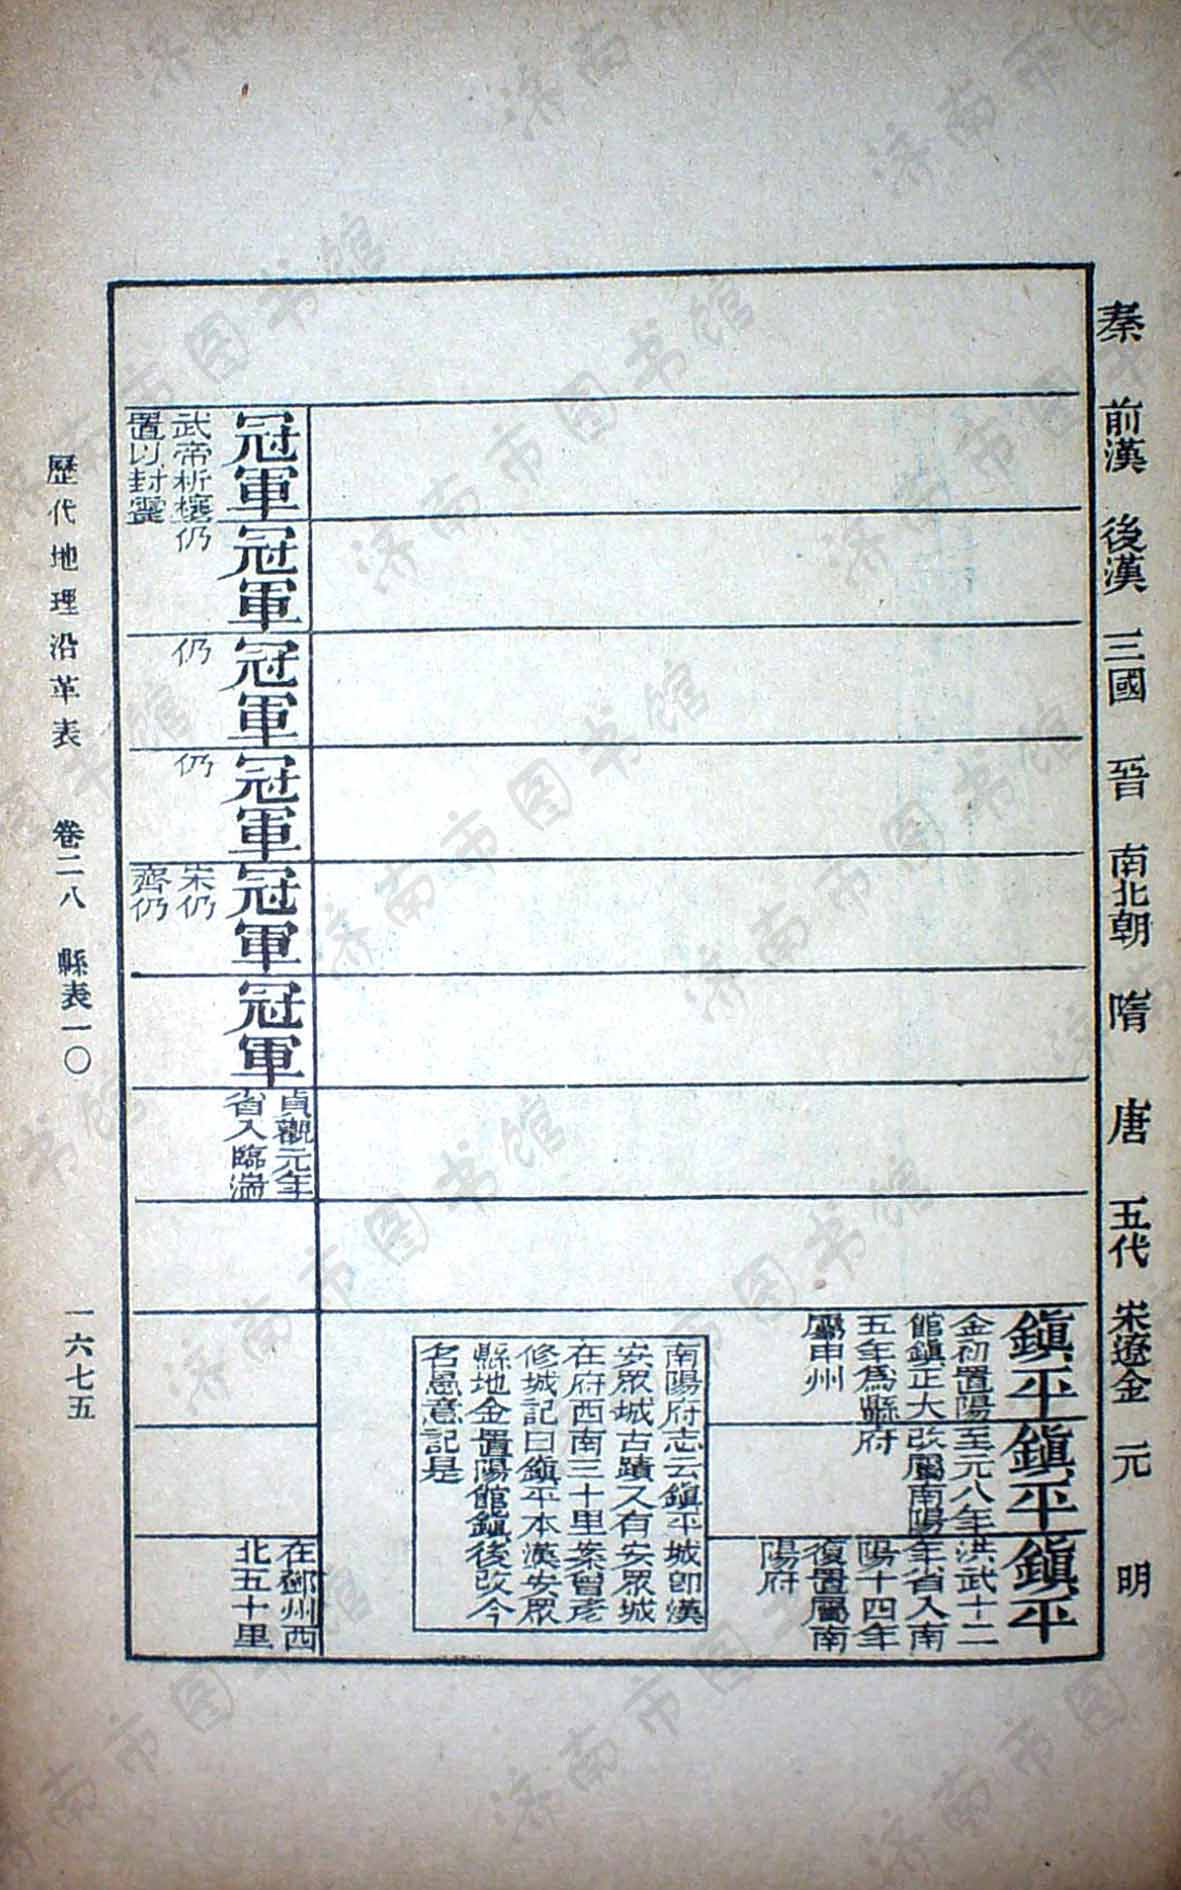 秦
前漢
後漢
三國
晉
南北朝
隋
唐
五代
宋遼金
元
明
鎭平
金初置陽
館鎮正大
五年爲縣
屬申州
鎭平
至元八年
改屬南陽
府
鎭平
洪武十二
年省入南
陽十四年
復置屬南
陽府
南陽府志云鎭平城卽漢
安眾城古蹟又有安眾城
在府西南三十里案曾茂
修城記曰鎭平本漢安眾
縣地金置陽館鎮後改今
名愚意記是
冠軍
武帝析穰
置以封霍
冠軍
仍
冠軍
仍
冠軍
仍
冠軍
宋仍
齊仍
冠軍
貞觀元年
省入臨湍
在鄧州西
北五十里
歷代地理沿革表 卷二八 縣表一〇 一六七五
济南市图书馆